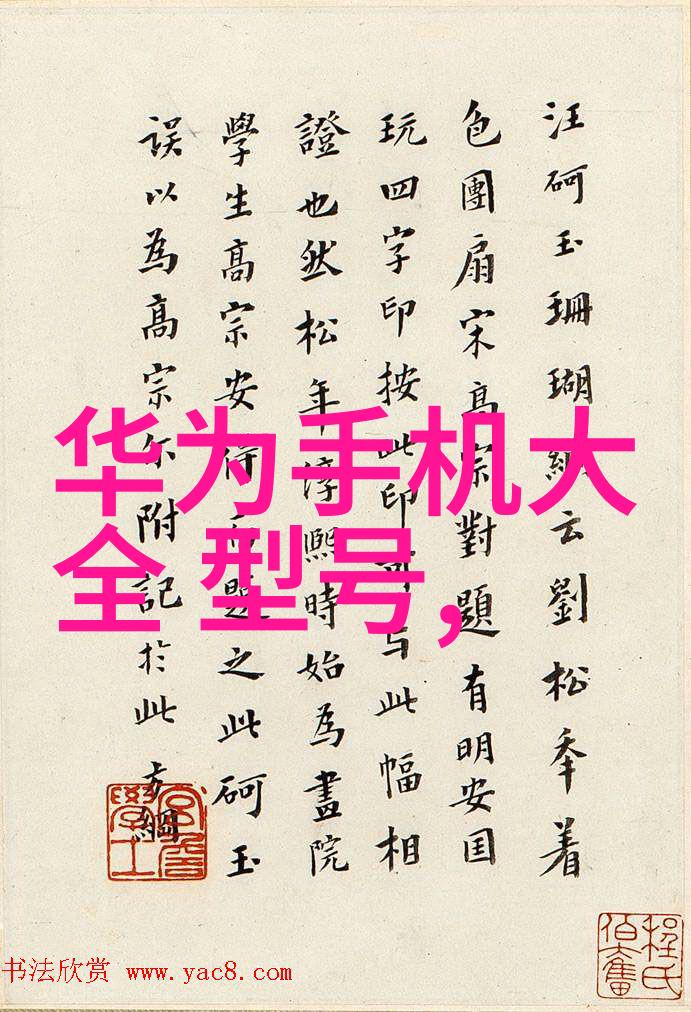 汪砢玉珊瑚網云劉松年着
色團扇宋高宗對題有明安国
玩四字印按此印可与此幅相
證也然松年淳熙時始為畫院
學生高宗安得而題之此砢玉
誤以為高宗尔附記於此方綱
华为手机大
全 型号,
程氏
伯奮
书法欣赏 www.yac8.com